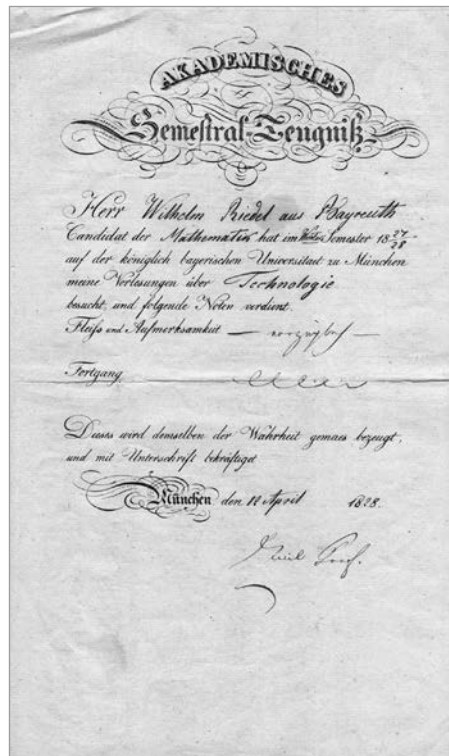 AKADEMISCHES
Semestral-Zeugniß
Herr Wilhelm Riedel aus Bayreuth
Candidat der Mathematik hat im Winter Semester 18 27/28
auf der königlich bayerischen Universitaet zu München
meine Vorlesungen über Technologie
besucht, und folgende Noten verdient.
Fleiss und Aufmerksamkeit — vorzüglich —
Fortgang
Dieses wird demselben der Wahrheit gemaes bezeugt,
und mit Unterschrift bekräftiget
München den 12 April 1828.
Prof.